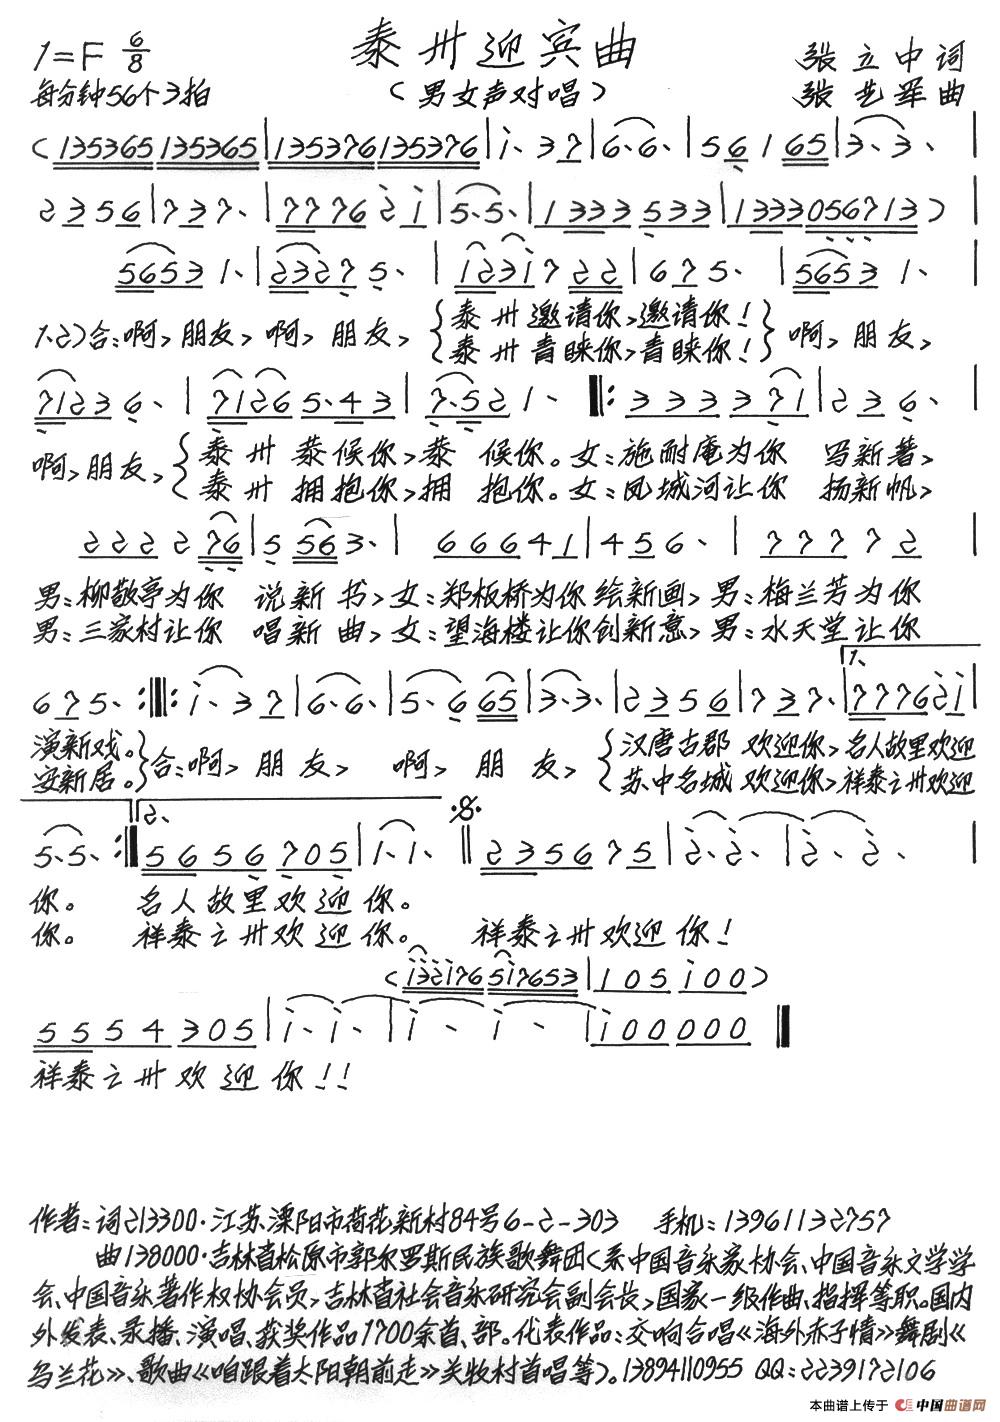 泰州迎宾曲
1=F 6/8
张立中 词
每分钟56个3拍
（男女声对唱）
张艺军 曲
( 135365 135365 | 135376 135376 | i· 3 7 | 6· 6· | 5 6 1 65 | 3· 3· |
2 3 5 6 | 7 3 7· | 7 7 7 6 2 i | 5· 5· | 1 3 3 3 5 3 3 | 1 3 3 3 0 5 6 7 1 3 ) |
5 6 5 3 1· | 2 3 2 7 5· | i 2 3 i 7 2 2 | 6 7 5· | 5 6 5 3 1· |
1.2)合:啊,朋友,啊,朋友, 泰州邀请你,邀请你! 啊,朋友,
泰州青睐你,青睐你!
7 1 2 3 6· | 7 1 2 6 5· 4 3 | 7· 5 2 1· ‖: 3 3 3 3 7 1 | 2 3 6· |
啊,朋友, 泰州恭候你,恭候你。女:施耐庵为你 写新著,
泰州拥抱你,拥抱你。女:凤城河让你 扬新帆,
2 2 2 2 7 6 | 5 5 6 3· | 6 6 6 4 1 | 4 5 6· | 7 7 7 7 2 |
男:柳敬亭为你 说新书,女:郑板桥为你绘新画,男:梅兰芳为你
男:三家村让你 唱新曲,女:望海楼让你创新意,男:水天堂让你
6 7 5· :‖: i· 3 7 | 6· 6· | 5· 6 6 5 | 3· 3· | 2 3 5 6 | 7 3 7· | 1. 7 7 7 6 2 i |
演新戏。 合:啊,朋友, 啊,朋友, 汉唐古郡 欢迎你,名人故里欢迎
安新居。 苏中名城 欢迎你,祥泰之州欢迎
5· 5· :‖ 2. 5 6 5 6 7 0 5 | i· i· ‖ 2 3 5 6 7 5 | 2· 2· | 2· 2· |
你。 名人故里欢迎你。
你。 祥泰之州欢迎你。 祥泰之州欢迎你!
( i 3 2 i 7 6 5 i 7 6 5 3 | 1 0 5 i 0 0 )
5 5 5 4 3 0 5 | i· i· | i· i· | i 0 0 0 0 0 ‖
祥泰之州欢迎你!!
作者:词213300·江苏溧阳市荷花新村84号6-2-303 手机:13961132757
曲138000·吉林省松原市郭尔罗斯民族歌舞团(系中国音乐家协会、中国音乐文学学
会、中国音乐著作权协会员,吉林省社会音乐研究会副会长,国家一级作曲、指挥等职。国内
外发表、录播、演唱、获奖作品1700余首、部。代表作品:交响合唱《海外赤子情》舞剧《
乌兰花》、歌曲《咱跟着太阳朝前走》关牧村首唱等)。13894110955 QQ:2239172106
本曲谱上传于 中国曲谱网